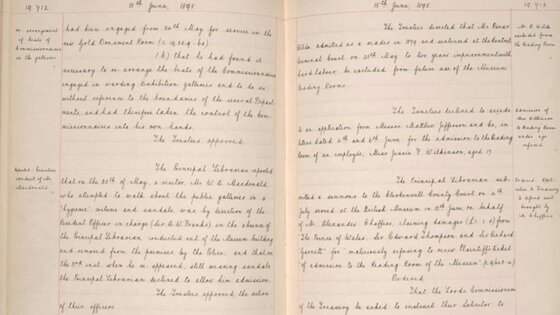 19,712
15th June, 1895
re-arrangement
of beats of
Commissionaires
in the galleries
had been engaged from 20th May for service in the
new Gold Ornament Room
(k) that he had found it
necessary to re-arrange the beats of the Commissionaires
engaged in warding Exhibition galleries and to do so
without reference to the boundaries of the several Depart-
ments, and had therefore taken the control of the Com-
missionaires into his own hands.
The Trustees approved.
conduct of Mr
Macdonald
The Principal Librarian reported
that on the 28th of May, a visitor, Mr W. A. Macdonald,
who attempted to walk about the public galleries in a
"hygienic" costume and sandals, was by direction of the
Resident Officer in charge (Sir A. W. Franks) in the absence of
the Principal Librarian conducted out of the Museum building
and removed from the premises by the Police; and that on
the 3rd inst. when he re-appeared, still wearing sandals
the Principal Librarian declined to allow him admission.
The Trustees approved the action
of their officers
15th June, 1895
19,713
Mr O. Wilde
excluded from
the Reading Room
The Trustees directed that Mr Oscar
Wilde admitted as a reader in 1879 and sentenced at the Central
Criminal Court on 25th May to two years imprisonment with
hard labour, be excluded from future use of the Museum
Reading Room
admission of
Miss Wilkinson
to Reading Room
under age
refused
The Trustees declined to accede
to an application from Messrs Matthew Jefferson and Co, in
letters dated 4th and 6th June, for the admission to the Reading
Room of an employée, Miss Jessie F. Wilkinson, aged 19.
to Treasury
to defend suit
brought by
A. Chaffers
The Principal Librarian sub-
mitted a summons to the Clerkenwell County Court on
July served at the British Museum on 12th June, on behalf
of Mr Alexander Chaffers, claiming damages from
"The Prince of Wales, Sir Edward Thompson and Sir Richard
Garnett" for "maliciously refusing to renew Plaintiff's ticket
of admission to the Reading Room of the Museum".
Ordered
That the Lords Commissioners
of the Treasury be asked to instruct their Solicitor to